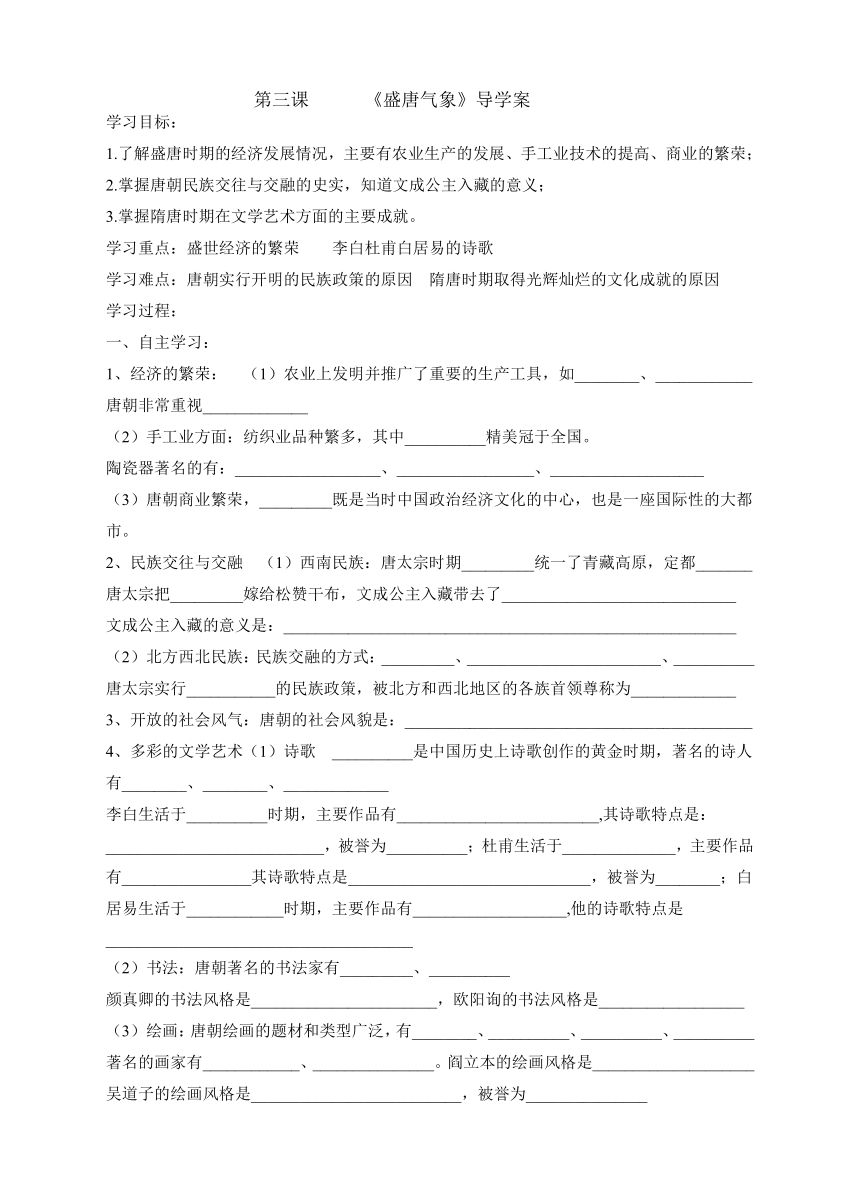 第三课　　　《盛唐气象》导学案
学习目标：
1.了解盛唐时期的经济发展情况，主要有农业生产的发展、手工业技术的提高、商业的繁荣；
2.掌握唐朝民族交往与交融的史实，知道文成公主入藏的意义；
3.掌握隋唐时期在文学艺术方面的主要成就。
学习重点：盛世经济的繁荣　　李白杜甫白居易的诗歌
学习难点：唐朝实行开明的民族政策的原因　隋唐时期取得光辉灿烂的文化成就的原因
学习过程：
一、自主学习：
1、经济的繁荣：　（1）农业上发明并推广了重要的生产工具，如________、____________
唐朝非常重视_____________
（2）手工业方面：纺织业品种繁多，其中__________精美冠于全国。
陶瓷器著名的有：__________________、_________________、___________________
（3）唐朝商业繁荣，_________既是当时中国政治经济文化的中心，也是一座国际性的大都
市。
2、民族交往与交融　（1）西南民族：唐太宗时期_________统一了青藏高原，定都_______
唐太宗把_________嫁给松赞干布，文成公主入藏带去了_____________________________
文成公主入藏的意义是：________________________________________________________
（2）北方西北民族：民族交融的方式：_________、________________________、__________
唐太宗实行___________的民族政策，被北方和西北地区的各族首领尊称为_____________
3、开放的社会风气：唐朝的社会风貌是：___________________________________________
4、多彩的文学艺术（1）诗歌　__________是中国历史上诗歌创作的黄金时期，著名的诗人
有________、________、_____________
李白生活于__________时期，主要作品有_________________________,其诗歌特点是：
___________________________，被誉为__________；杜甫生活于______________，主要作品
有________________其诗歌特点是______________________________，被誉为________；白
居易生活于____________时期，主要作品有___________________,他的诗歌特点是
______________________________________
（2）书法：唐朝著名的书法家有_________、__________
颜真卿的书法风格是_______________________，欧阳询的书法风格是__________________
（3）绘画：唐朝绘画的题材和类型广泛，有________、__________、__________、__________
著名的画家有____________、_______________。阎立本的绘画风格是____________________
吴道子的绘画风格是__________________________，被誉为_______________